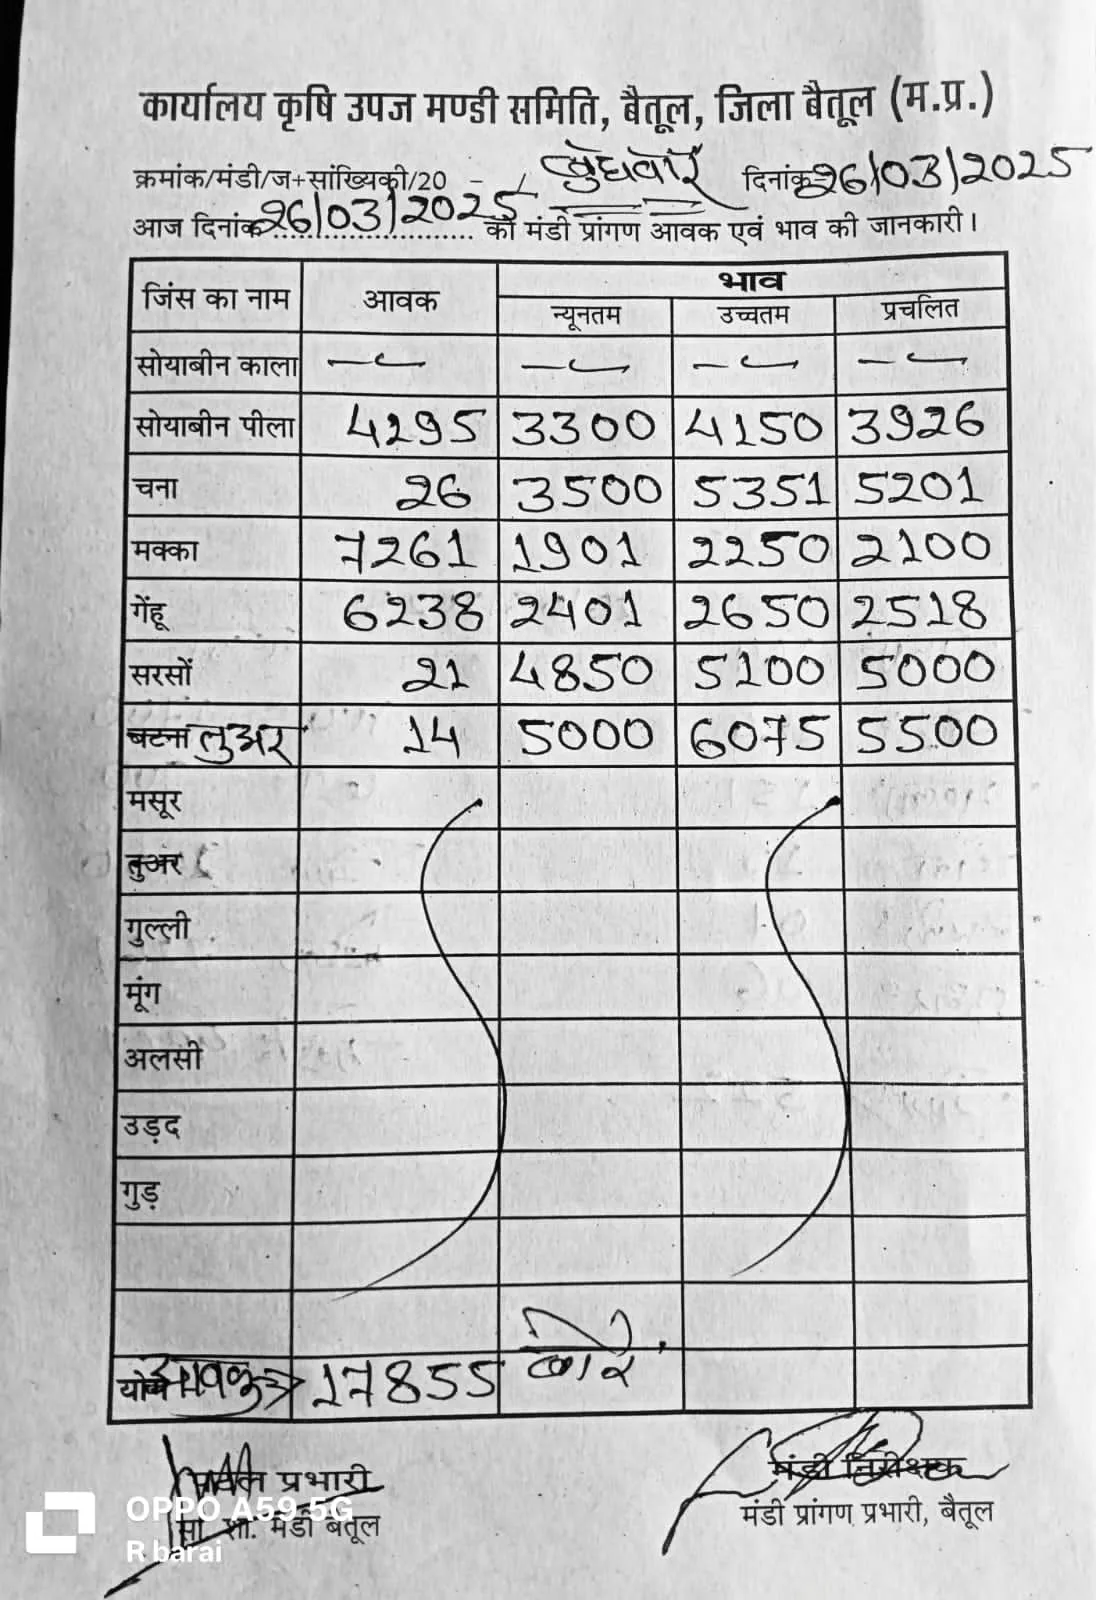 कार्यालय कृषि उपज मण्डी समिति, बैतूल, जिला बैतूल (म.प्र.)
क्रमांक/मंडी/ज+सांख्यिकी/20 - / बुधवार दिनांक 26/03/2025
आज दिनांक 26/03/2025 को मंडी प्रांगण आवक एवं भाव की जानकारी।
जिंस का नाम आवक भाव
न्यूनतम उच्चतम प्रचलित
सोयाबीन काला — — — —
सोयाबीन पीला 4295 3300 4150 3926
चना 26 3500 5351 5201
मक्का 7261 1901 2250 2100
गेंहू 6238 2401 2650 2518
सरसों 21 4850 5100 5000
बटना तुअर 14 5000 6075 5500
मसूर
तुअर
गुल्ली
मूंग
अलसी
उड़द
गुड़
आवक 17855 बोरे
प्रभारी मंडी निरीक्षक
मंडी बैतूल मंडी प्रांगण प्रभारी, बैतूल
OPPO A59 5G
R barai